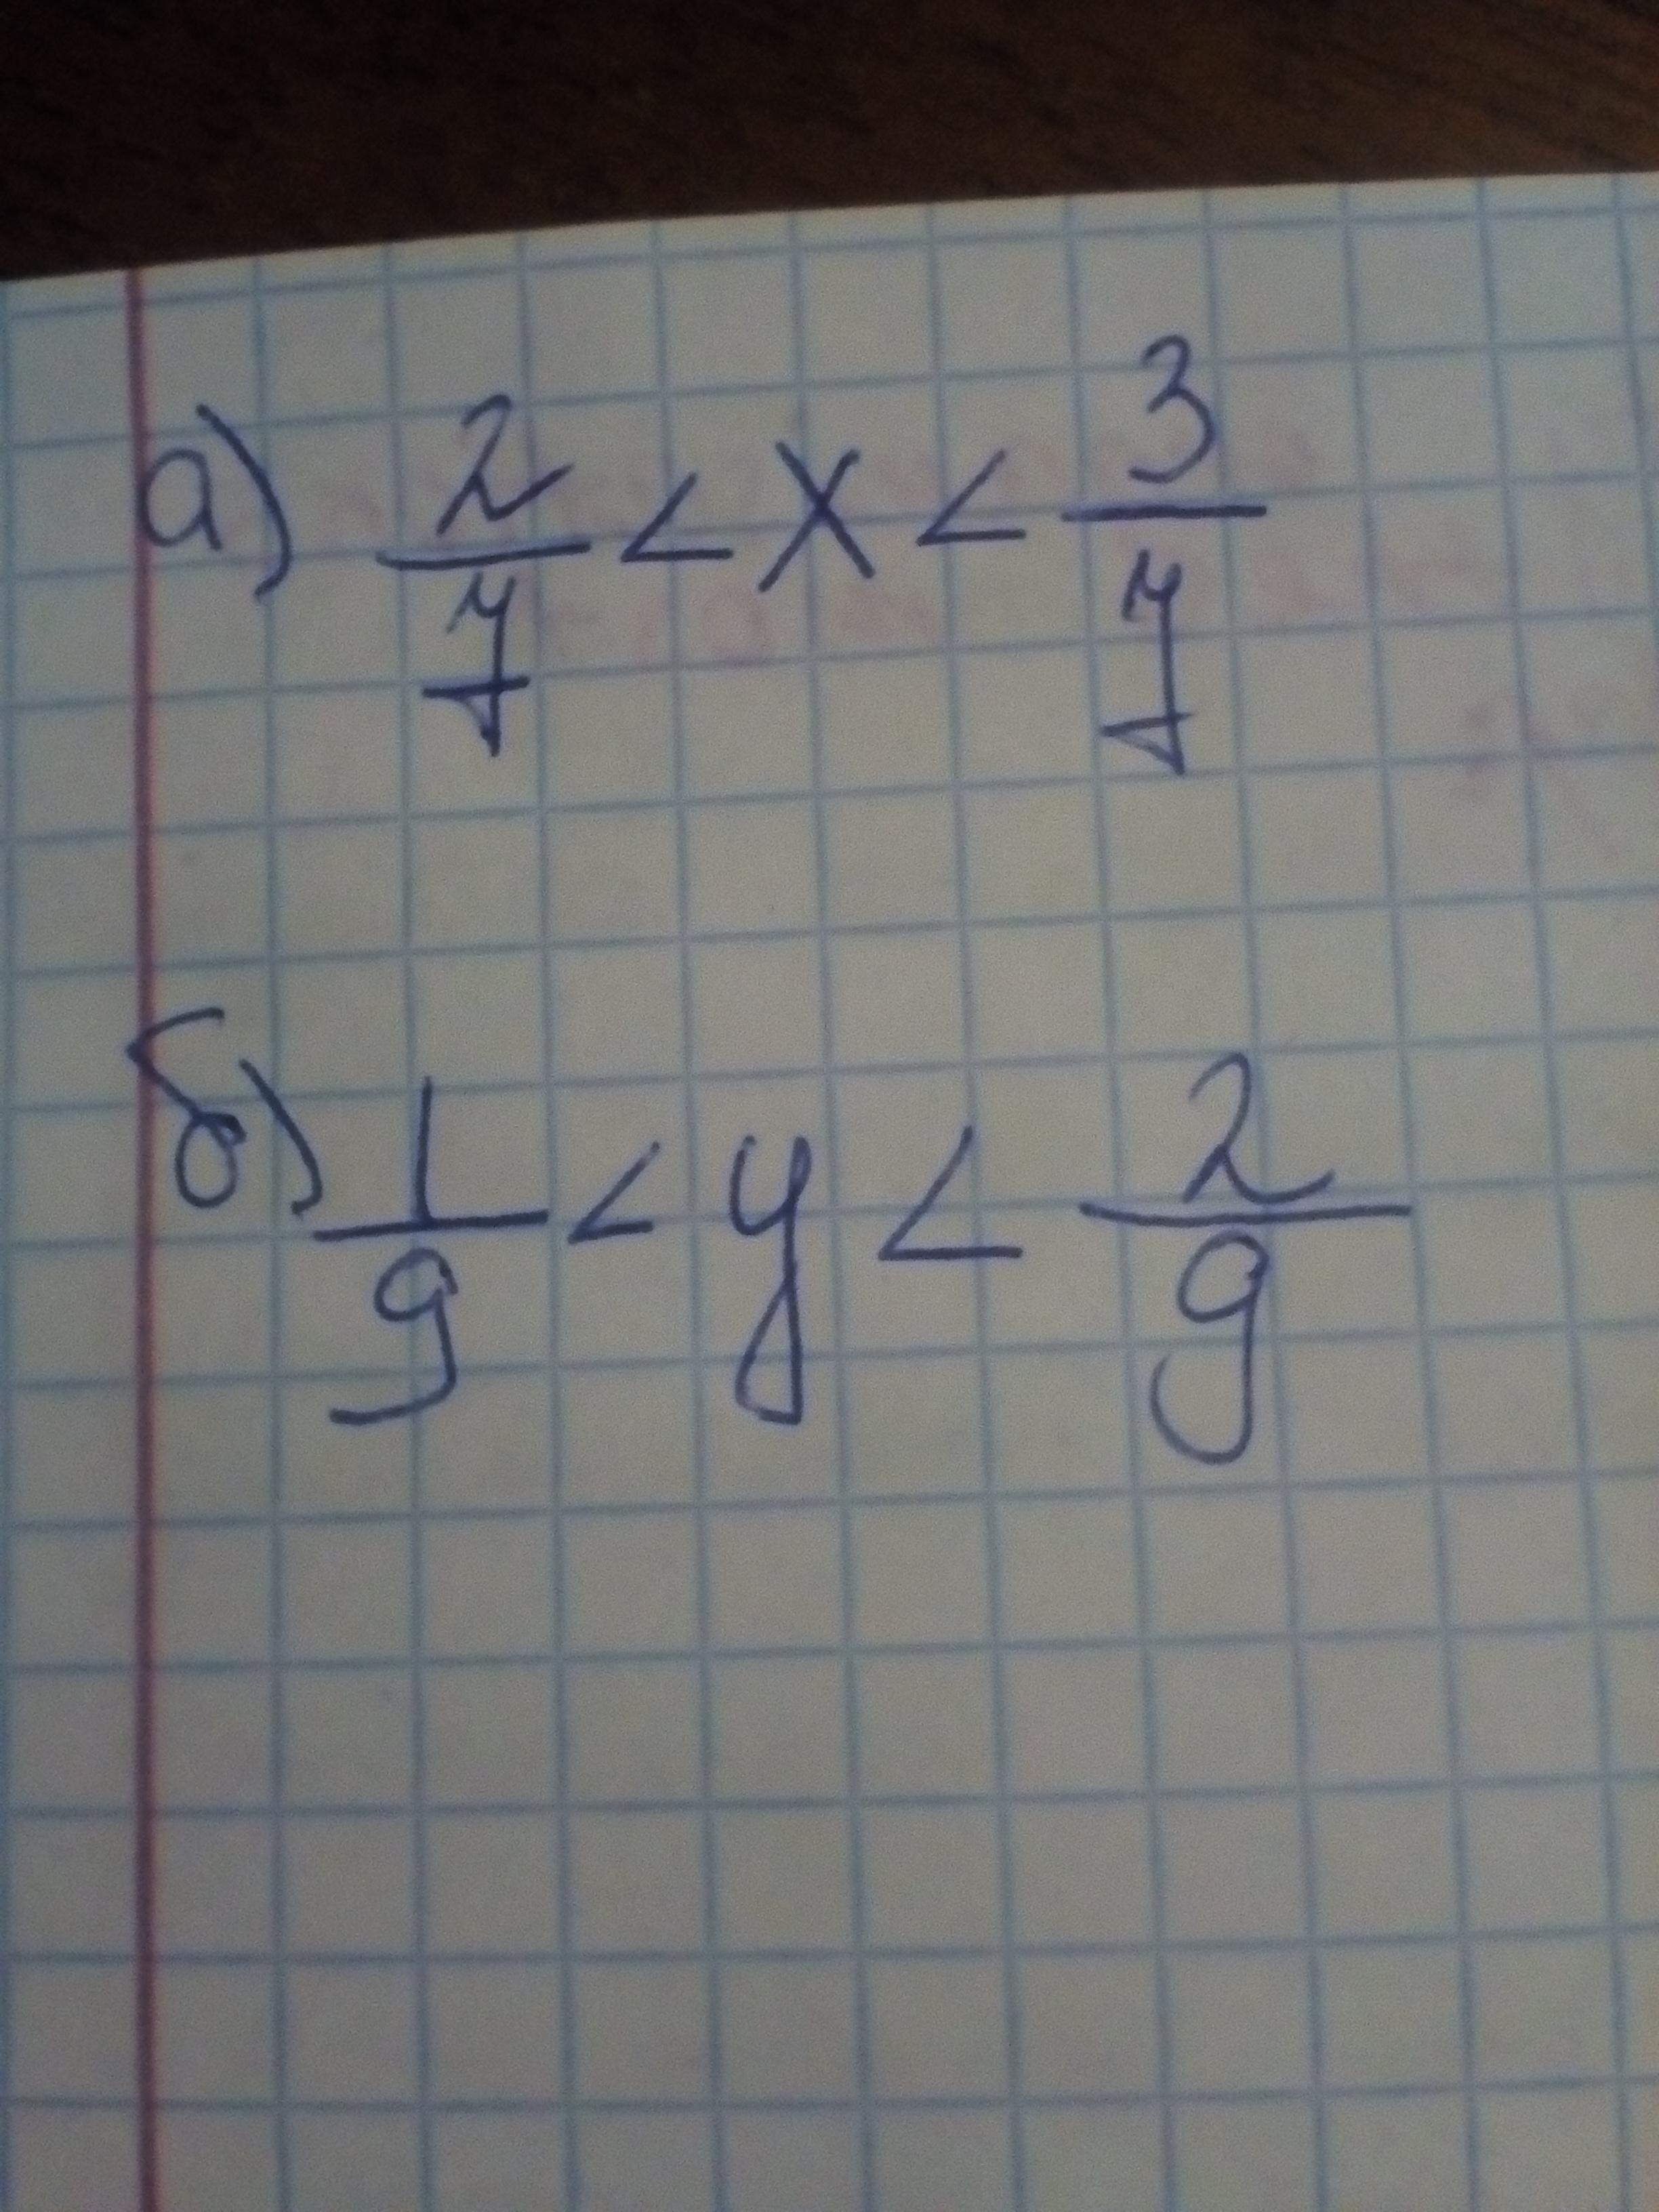 а) 2/7 < x < 3/7
б) 1/9 < y < 2/9